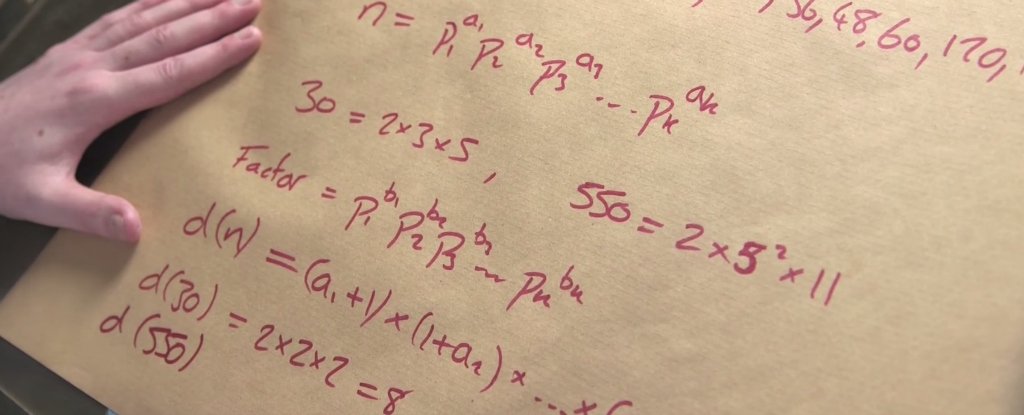 36, 48, 60, 120,
n = p₁^a₁ p₂^a₂ p₃^a₃ ... pₖ^aₖ
30 = 2×3×5, 550 = 2×5²×11
Factor = p₁^b₁ p₂^b₂ p₃^b₃ ... pₖ^bₖ
d(n) = (a₁+1)×(1+a₂)× ... × (
d(30) = 2×2×2 = 8
d(550)